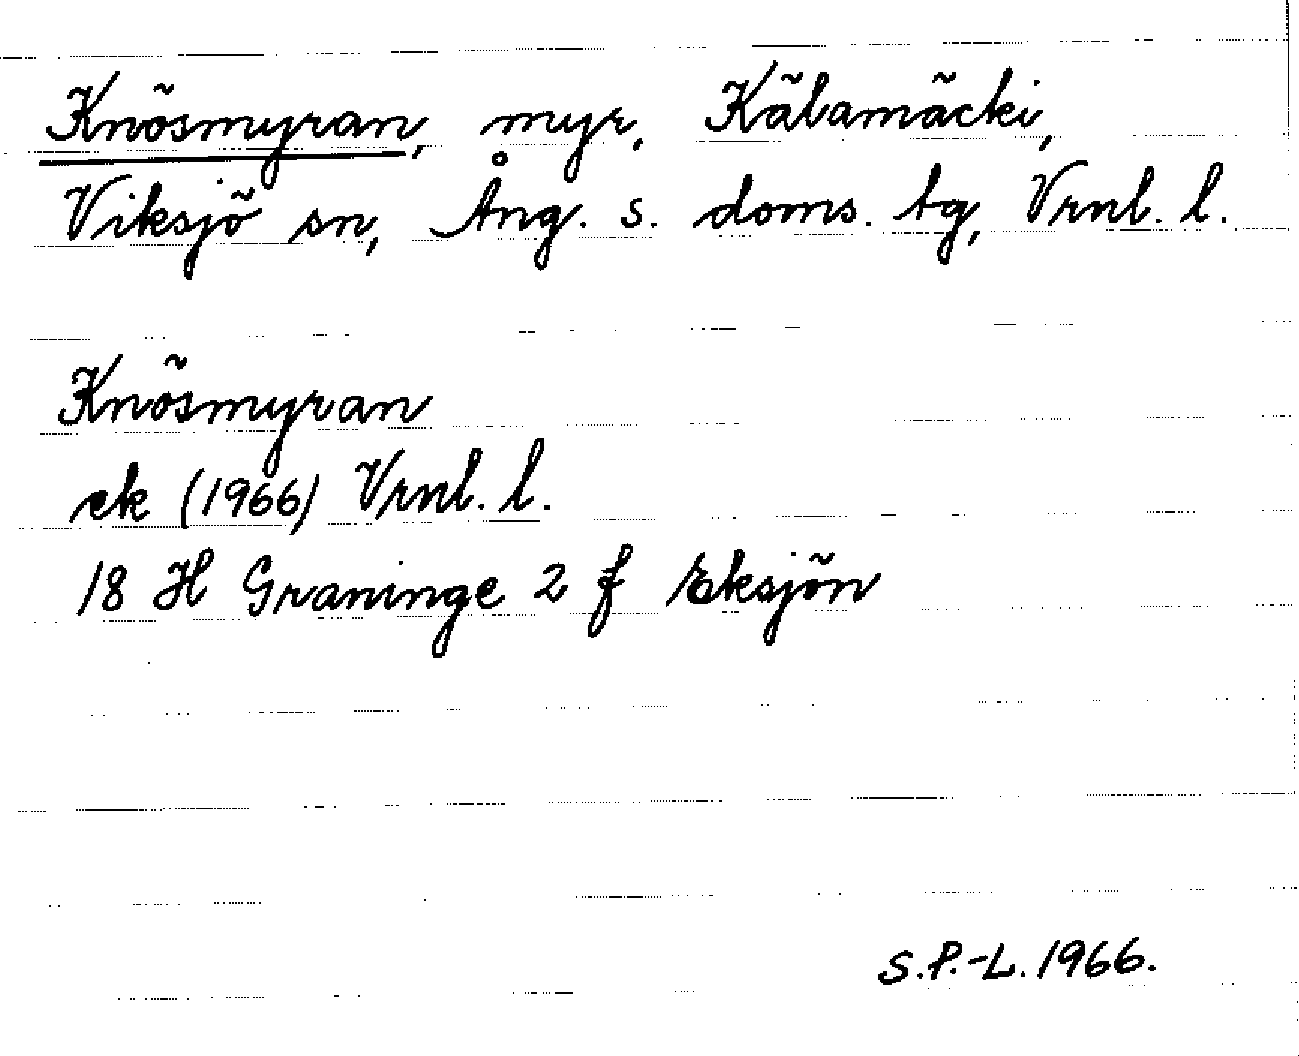 Knösmyran, myr, Kälamäcki,
Viksjö sn, Ång. s. doms. tg, Vrnl. l.
Knösmyran
ek (1966) Vrnl. l.
18 H Graninge 2 f Eksjön
S.P.-L. 1966.